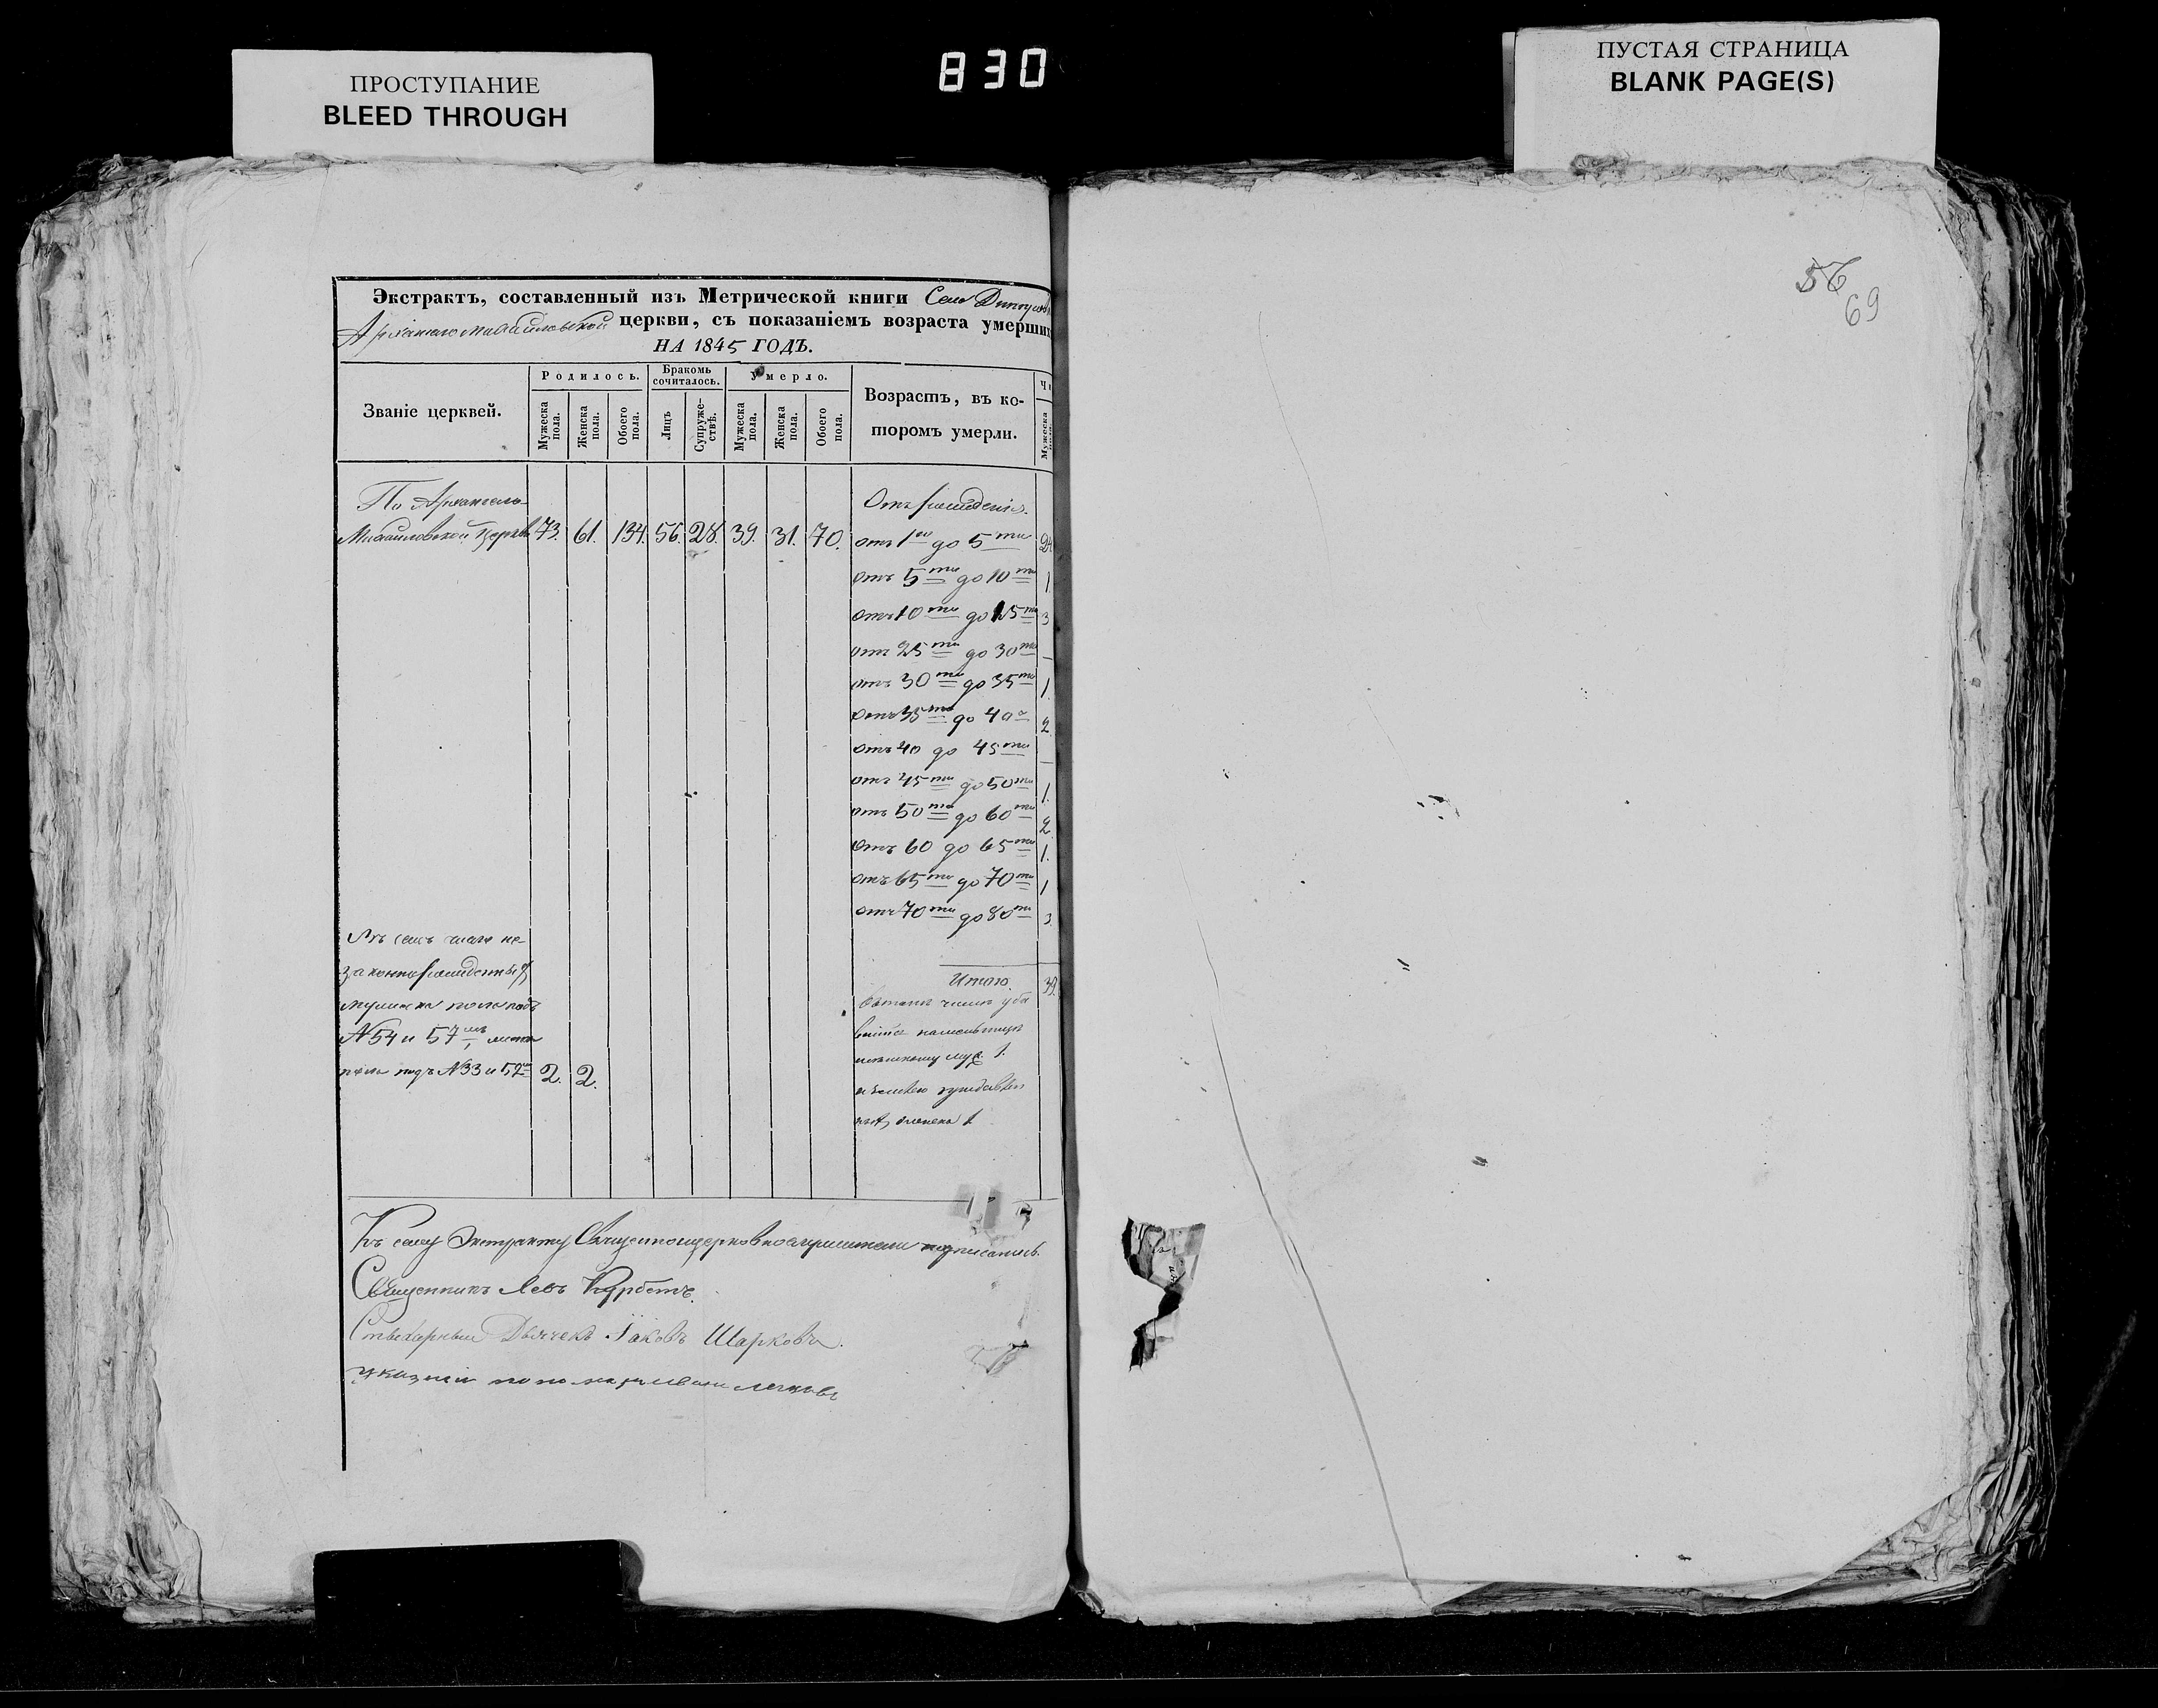 ПРОСТУПАНИЕ
BLEED THROUGH
830
ПУСТАЯ СТРАНИЦА
BLANK PAGE(S)
56
69
Экстрактъ, составленный изъ Метрической книги Села
Архангеломихайловской церкви, съ показаніемъ возраста умерших
НА 1845 ГОДЪ.
Званіе церквей.
Родилось.
Бракомъ сочиталось.
Умерло.
Возрастъ, въ которомъ умерли.
Мужеска пола.
Женска пола.
Обоего пола.
Лицъ
Супружествъ.
Мужеска пола.
Женска пола.
Обоего пола.
Мужеска
По Архангело-
Михайловской Церкви 73. 61. 134. 56. 28. 39. 31. 70.
Отъ рожденія.
отъ 1го до 5ти 24
отъ 5ти до 10ти 1
отъ 10ти до 15ти 3
отъ 25ти до 30ти —
отъ 30ти до 35ти 1.
отъ 35ти до 40а 2.
отъ 40 до 45ти —
отъ 45ти до 50ти 1.
отъ 50ти до 60ти 2.
отъ 60 до 65ти 1.
отъ 65ти до 70ти 1
отъ 70ти до 80ти 3.
Итого. 39.
Въ семъ числе не-
законнорожденныхъ
мужеска пола подъ
№ 54 и 57мъ, женска
пола подъ № 33 и 52мъ 2. 2.
Къ сему Экстракту Священноцерковнослужители подписались.
Священникъ Левъ Курбетъ.
Стихарный Дьячекъ Іаковъ Шарковъ.
указный пономарь